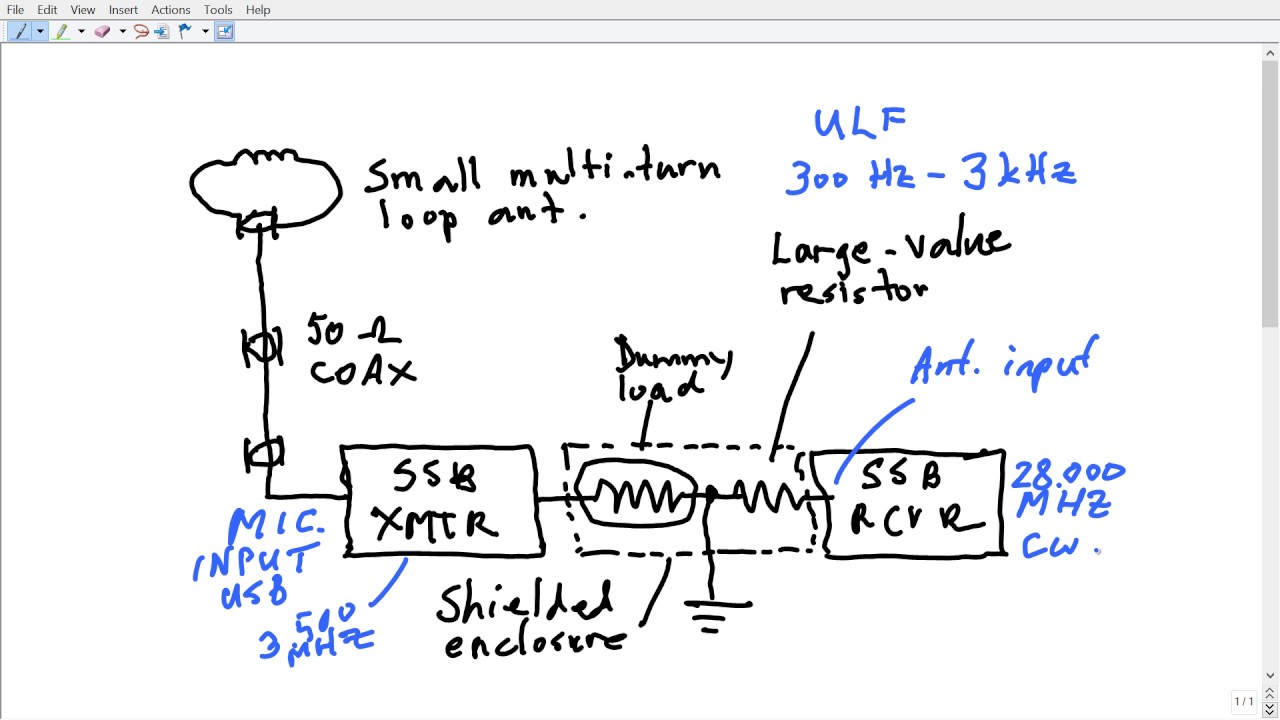 File Edit View Insert Actions Tools Help
ULF
300 Hz - 3 kHz
Small multi-turn
loop ant.
Large-value
resistor
50 Ω
COAX
Dummy
load
Ant. input
SSB
XMTR
SSB
RCVR
28.000
MHZ
CW.
MIC.
INPUT
USB
500
3 MHZ
Shielded
enclosure
1 / 1